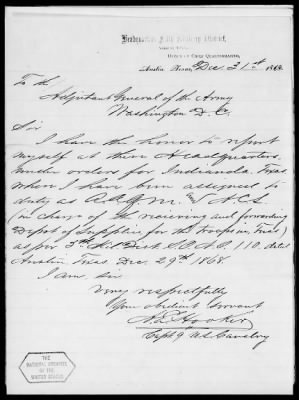 Headquarters Fifth Military District,
Office of Chief Quartermaster,
Austin, Texas, Dec 31st 1868
To the
Adjutant General of the Army
Washington D.C.
Sir
I have the honor to report
myself at these Headquarters,
under orders for Indianola Texas
when I have been assigned to
duty as A.A.Q.M. & A.C.S.
(in charge of the receiving and forwarding
Depot of Supplies for the troops in Texas)
as per 5th Mil. Dist. S.O. No. 110. dated
Austin Texas Dec. 29th 1868.
I am, Sir
Very respectfully
Your obedient Servant
Capt 9 U.S. Cavalry
THE
NATIONAL ARCHIVES
OF THE
UNITED STATES